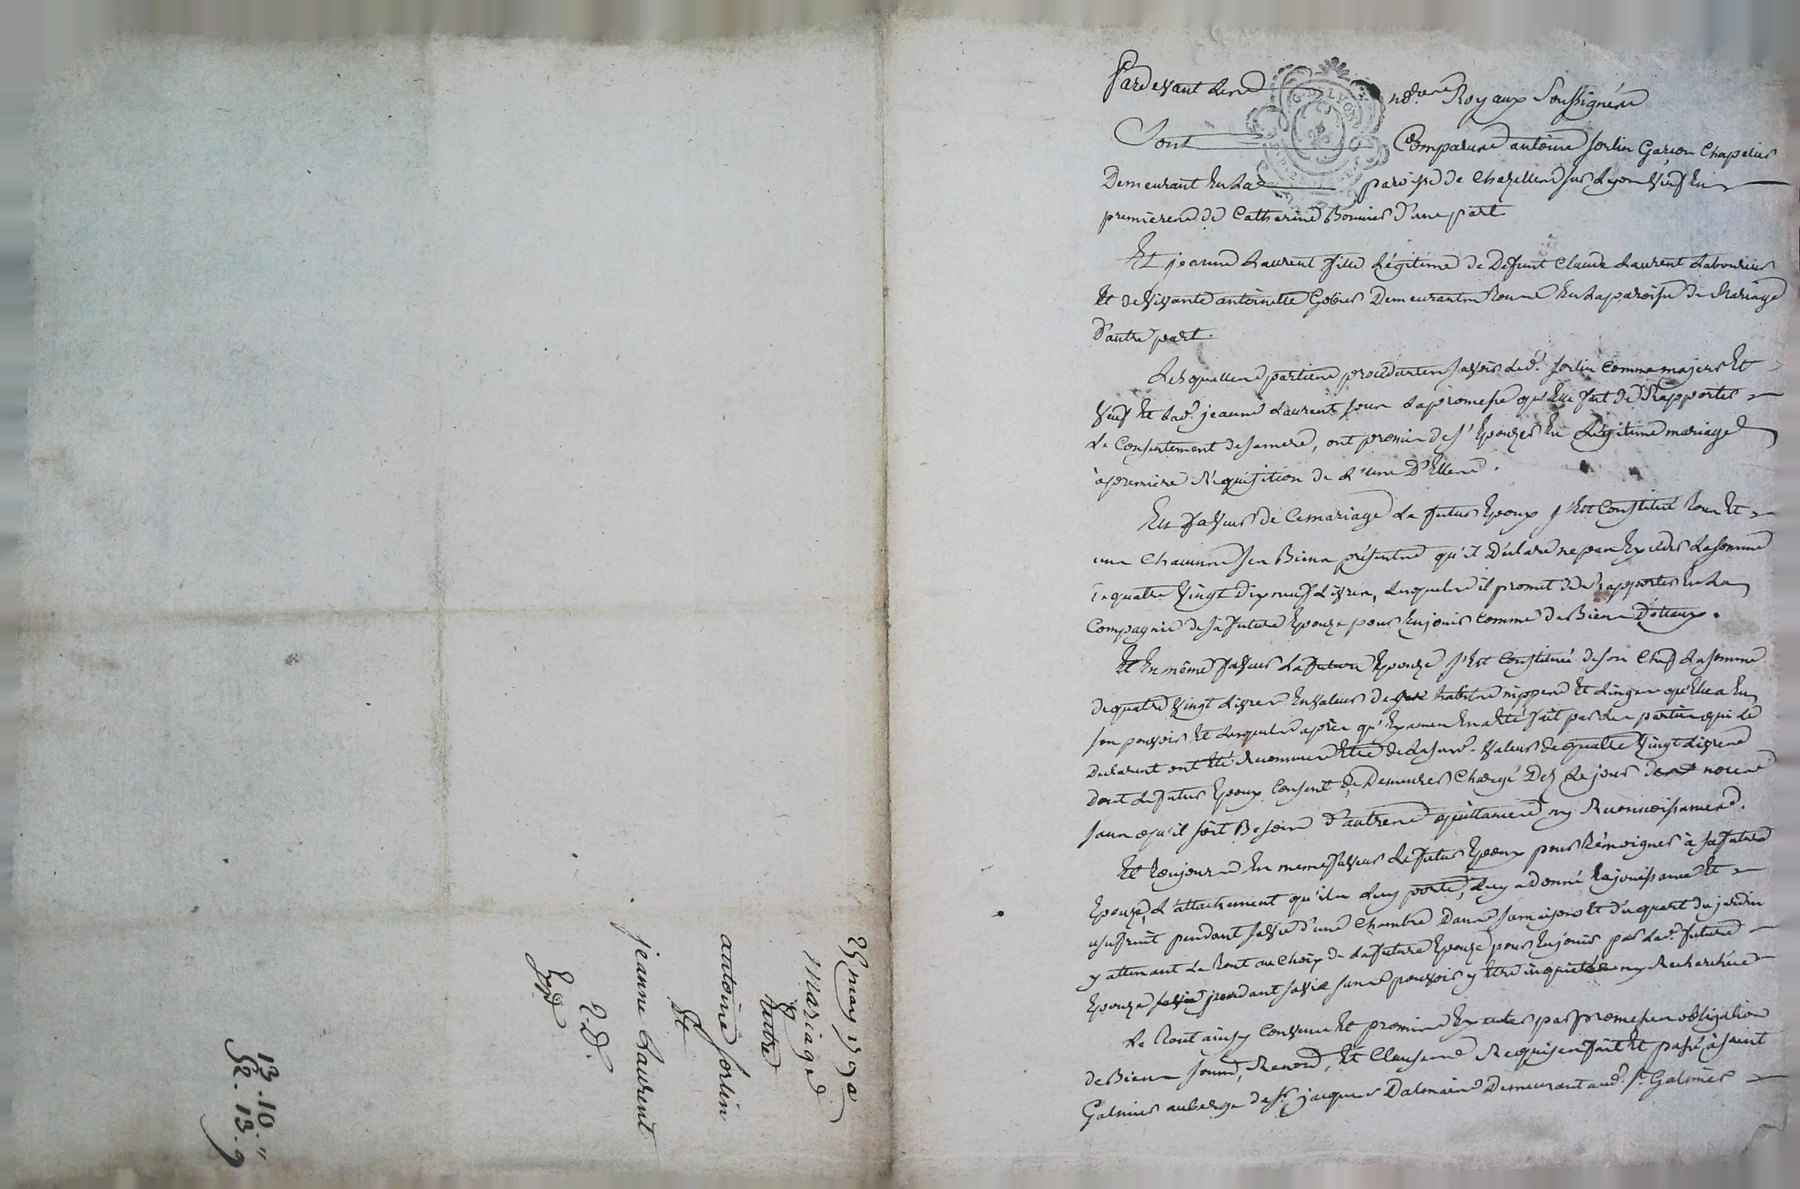 25 may 1790
Mariage
Entre
antoine Sorlin
Et
jeanne Laurent
E.D.
Expd
13. 10. "
52. 13. 9
Pardevant Les nores Royaux Soussignés
Sont Comparus antoine Sorlin Garçon Chapelier
Demeurant En La paroisse de Chazelles sur Lyon Veuf En
premieres de Catherine Bonnier d'une part
Et jeanne Laurent fille Légitime de Defunt Claude Laurent Laboureur
Et de Vivante antoinette Demeurantes Toutes En La paroisse de
D'autre part.
Lesquelles parties procedantes savoir Led. Sorlin Comme majeur Et
Veuf Et Lad. jeanne Laurent sous La promesse qu'Elle fait de Rapporter
Le Consentement de sa mere, ont promis de s'Epouzer En Légitime mariage
à premiere Réquisition de L'une D'Elles.
En faveur de Ce mariage Le futur Epoux s'Est Constitué Tous Et
uns Chacuns ses Biens présents qu'il Déclare ne pas Exceder La somme
de quatre Vingt Dix neuf Livres, Lesquels il promet de rapporter En La
Compagnie de sa future Epouze pour En jouir comme de Biens Dottaux.
Et En même faveur La future Epouze s'Est Constituée de son Chef La somme
de quatre Vingt Livres En valeur de ses habits nippes Et Linges qu'Elle a En
son pouvoir Et Lesquels après qu'Examen En a Eté fait par Les parties qui Le
Declarent ont Eté Reconnus Etre de La susd. Valeur de quatre Vingt Livres
dont Le futur Epoux Consent de Demeurer Chargé Dès Le jour des noces
sans qu'il soit Besoin d'autres quittances ny Reconnoissances.
Et Toujours En meme faveur Le futur Epoux pour Témoigner à sa future
Epouze L'attachement qu'il Luy porte, Luy a donné La jouissance Et
usufruit pendant sa vie d'une Chambre Dans sa maison Et d'un quart du jardin
y attenant Le Tout au Choix de La future Epouze pour En jouir par Lad. future
Epouze pendant sa vie sans pouvoir y Etre inquietée ny Recherchée
Le Tout ainsy Convenu Et promis Executer par promesses obligation
de Biens soumd, Renond, Et Clauses Requises fait Et passé à Saint
Galmier auberge de Sr. jacques Dalmais Demeurant aud. St. Galmier